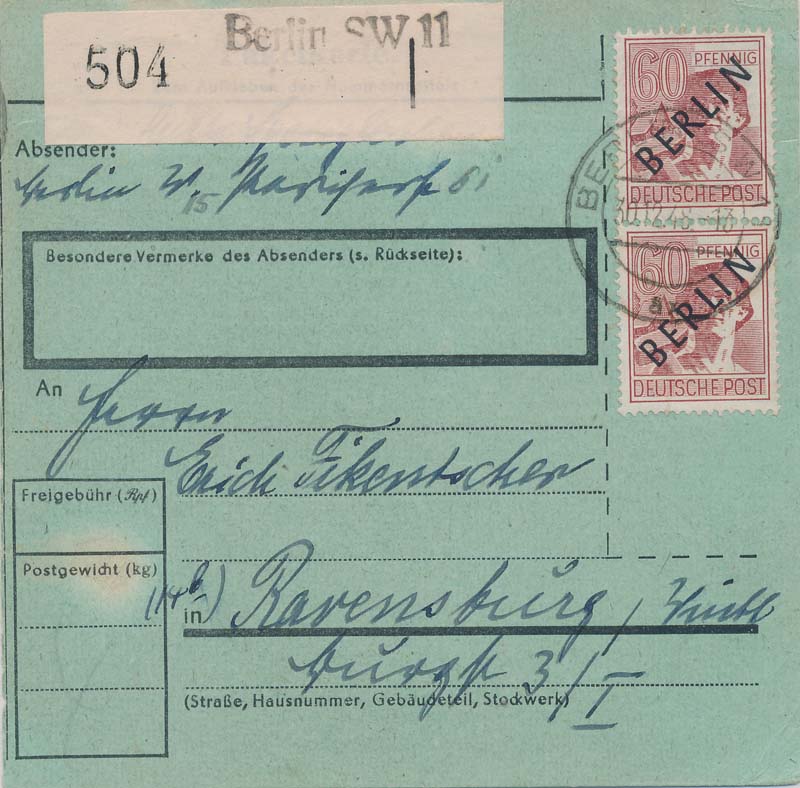 504 Berlin SW 11
Absender:
Berlin W. 15 Pariserstr 61
60 PFENNIG
BERLIN
DEUTSCHE POST
30.12.48
60 PFENNIG
BERLIN
DEUTSCHE POST
Besondere Vermerke des Absenders (s. Rückseite):
An Herrn
Erich Fikentscher
Freigebühr (Rpf)
Postgewicht (kg)
(14b) in Ravensburg / Württ
Burgstr 3/I
(Straße, Hausnummer, Gebäudeteil, Stockwerk)